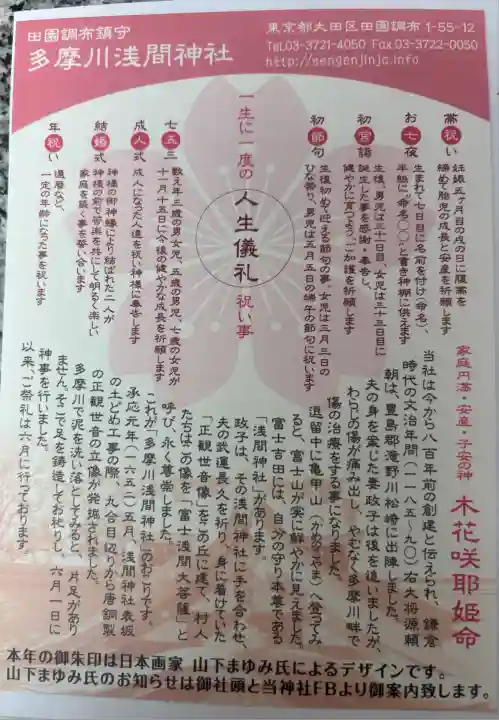 田園調布鎮守
多摩川浅間神社
東京都大田区田園調布1-55-12
TeL03-3721-4050 Fax 03-3722-0050
http://sengenjinja.info
一生に一度の
人生儀礼
祝い事
帯祝い
妊娠五ヶ月目の戌の日に腹帯を
締めて胎児の成長と安産を祈願します
お七夜
生まれて七日目に名前を付け(命名)、
半紙に“命名〇〇”と書き神棚に供えます
初宮詣
生後、男児は三十一日目、女児は三十三日目に
誕生した事を感謝・奉告し、
健やかに育つよう、ご加護を祈願します
初節句
生後初めて迎える節句の事、女児は三月三日の
ひな祭り、男児は五月五日の端午の節句に祝います
七五三
数え年三歳の男女児、五歳の男児、七歳の女児が
十一月十五日に今後の健やかな成長を祈願します
成人式
成人になった人達を祝い神様に奉告します
結婚式
神様の御神縁により結ばれた二人が
神様の前で苦楽を共にして明るく楽しい
家庭を築く事を誓い合います
年祝い
還暦など、
一定の年齢になった事を祝います
家庭円満・安産・子安の神
木花咲耶姫命
当社は今から八百年前の創建と伝えられ、鎌倉
時代の文治年間(一一八五〜九〇)右大将源頼
朝は、豊島郡滝野川松崎に出陣しました。
夫の身を案じた妻政子は後を追いましたが、
わらじの傷が痛み出し、やむなく多摩川畔で
傷の治療をする事になりました。
逗留中に亀甲山(かめのこやま)へ登ってみ
ると、富士山が実に鮮やかに見えました。
富士吉田には、自分の守り本尊である
「浅間神社」があります。
政子は、その浅間神社に手を合わせ、
夫の武運長久を祈り、身に着けていた
「正観世音像」をこの丘に建て、村人
たちはこの像を「富士浅間大菩薩」と
呼び、永く尊崇しました。
これが多摩川浅間神社のおこりです。
承応元年(一六五二)五月、浅間神社表坂
の土どめ工事の際、九合目辺りから唐銅製
の正観世音の立像が発掘されました。
多摩川で泥を洗い落としてみると、片足があり
ません。そこで足を鋳造してお祀りし、六月一日に
神事を行いました。
以来、ご祭礼は六月に行っております
本年の御朱印は日本画家 山下まゆみ氏によるデザインです。
山下まゆみ氏のお知らせは御社頭と当神社FBより御案内致します。